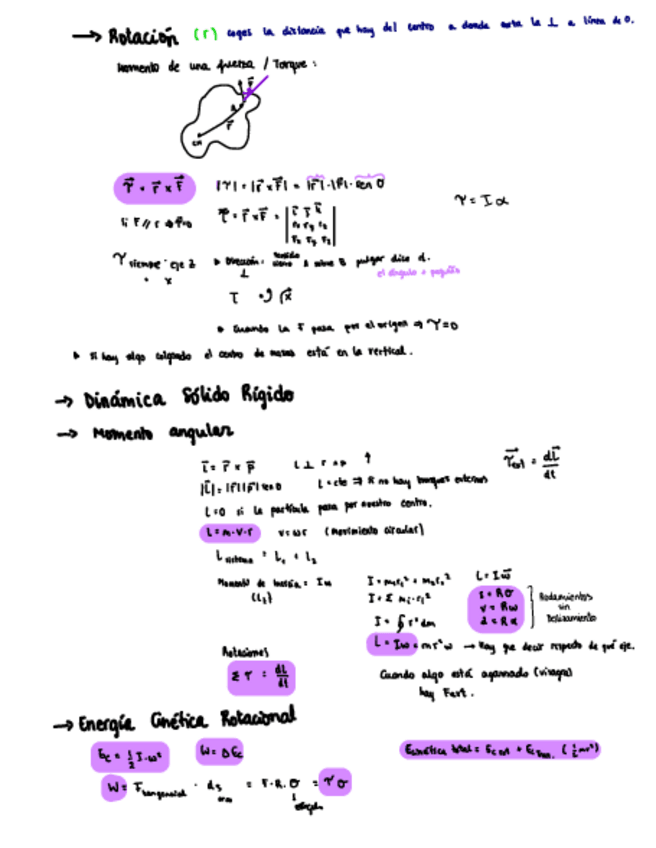 → Rotación (r) coges la distancia que hay del centro a donde esta la ⊥ a línea de 0.
Momento de una fuerza / Torque:
F
r
CM
τ⃗ = r⃗ x F⃗ |τ| = |r⃗ x F⃗| = |r⃗|·|F⃗|·sen θ
τ = I α
Si F // r ⇒ τ=0 τ⃗ = r⃗ x F⃗ = | i⃗ j⃗ k⃗
rx ry rz
Fx Fy Fz |
τ siempre eje z Dirección: A sobre B pulgar dice d.
x ⊥ el ángulo + pequeño
Cuando la F pasa por el origen ⇒ τ=0
Si hay algo colgado el centro de masas está en la vertical.
→ Dinámica Sólido Rígido
→ Momento angular
L⃗ = r⃗ x p⃗ L ⊥ r ↑ τ⃗ext = dL⃗/dt
|L⃗| = |r||p| sen θ L = cte ⇒ si no hay torques externos
L=0 si la partícula pasa por nuestro centro.
L = m·v·r v = wr (movimiento circular)
L sistema = L₁ + L₂
Momento de Inercia = I = m₁r₁² + m₂r₂² L = Iω⃗
I = Σ mᵢ·rᵢ² s = Rθ Rodamientos
v = Rω sin
I = ∮ r² dm a = Rα Deslizamiento
L = Iω = mr²ω → Hay que decir respecto de qué eje.
Rotaciones
Σ τ = dL/dt Cuando algo está agarrado (visagra)
hay Fext.
→ Energía Cinética Rotacional
Ec = ½ I·ω² W = ΔEc Ecinética total = Ec rot + Ec tras. (½mv²)
W = F tangencial · ds = F·R·θ = τ θ
arco ángulo